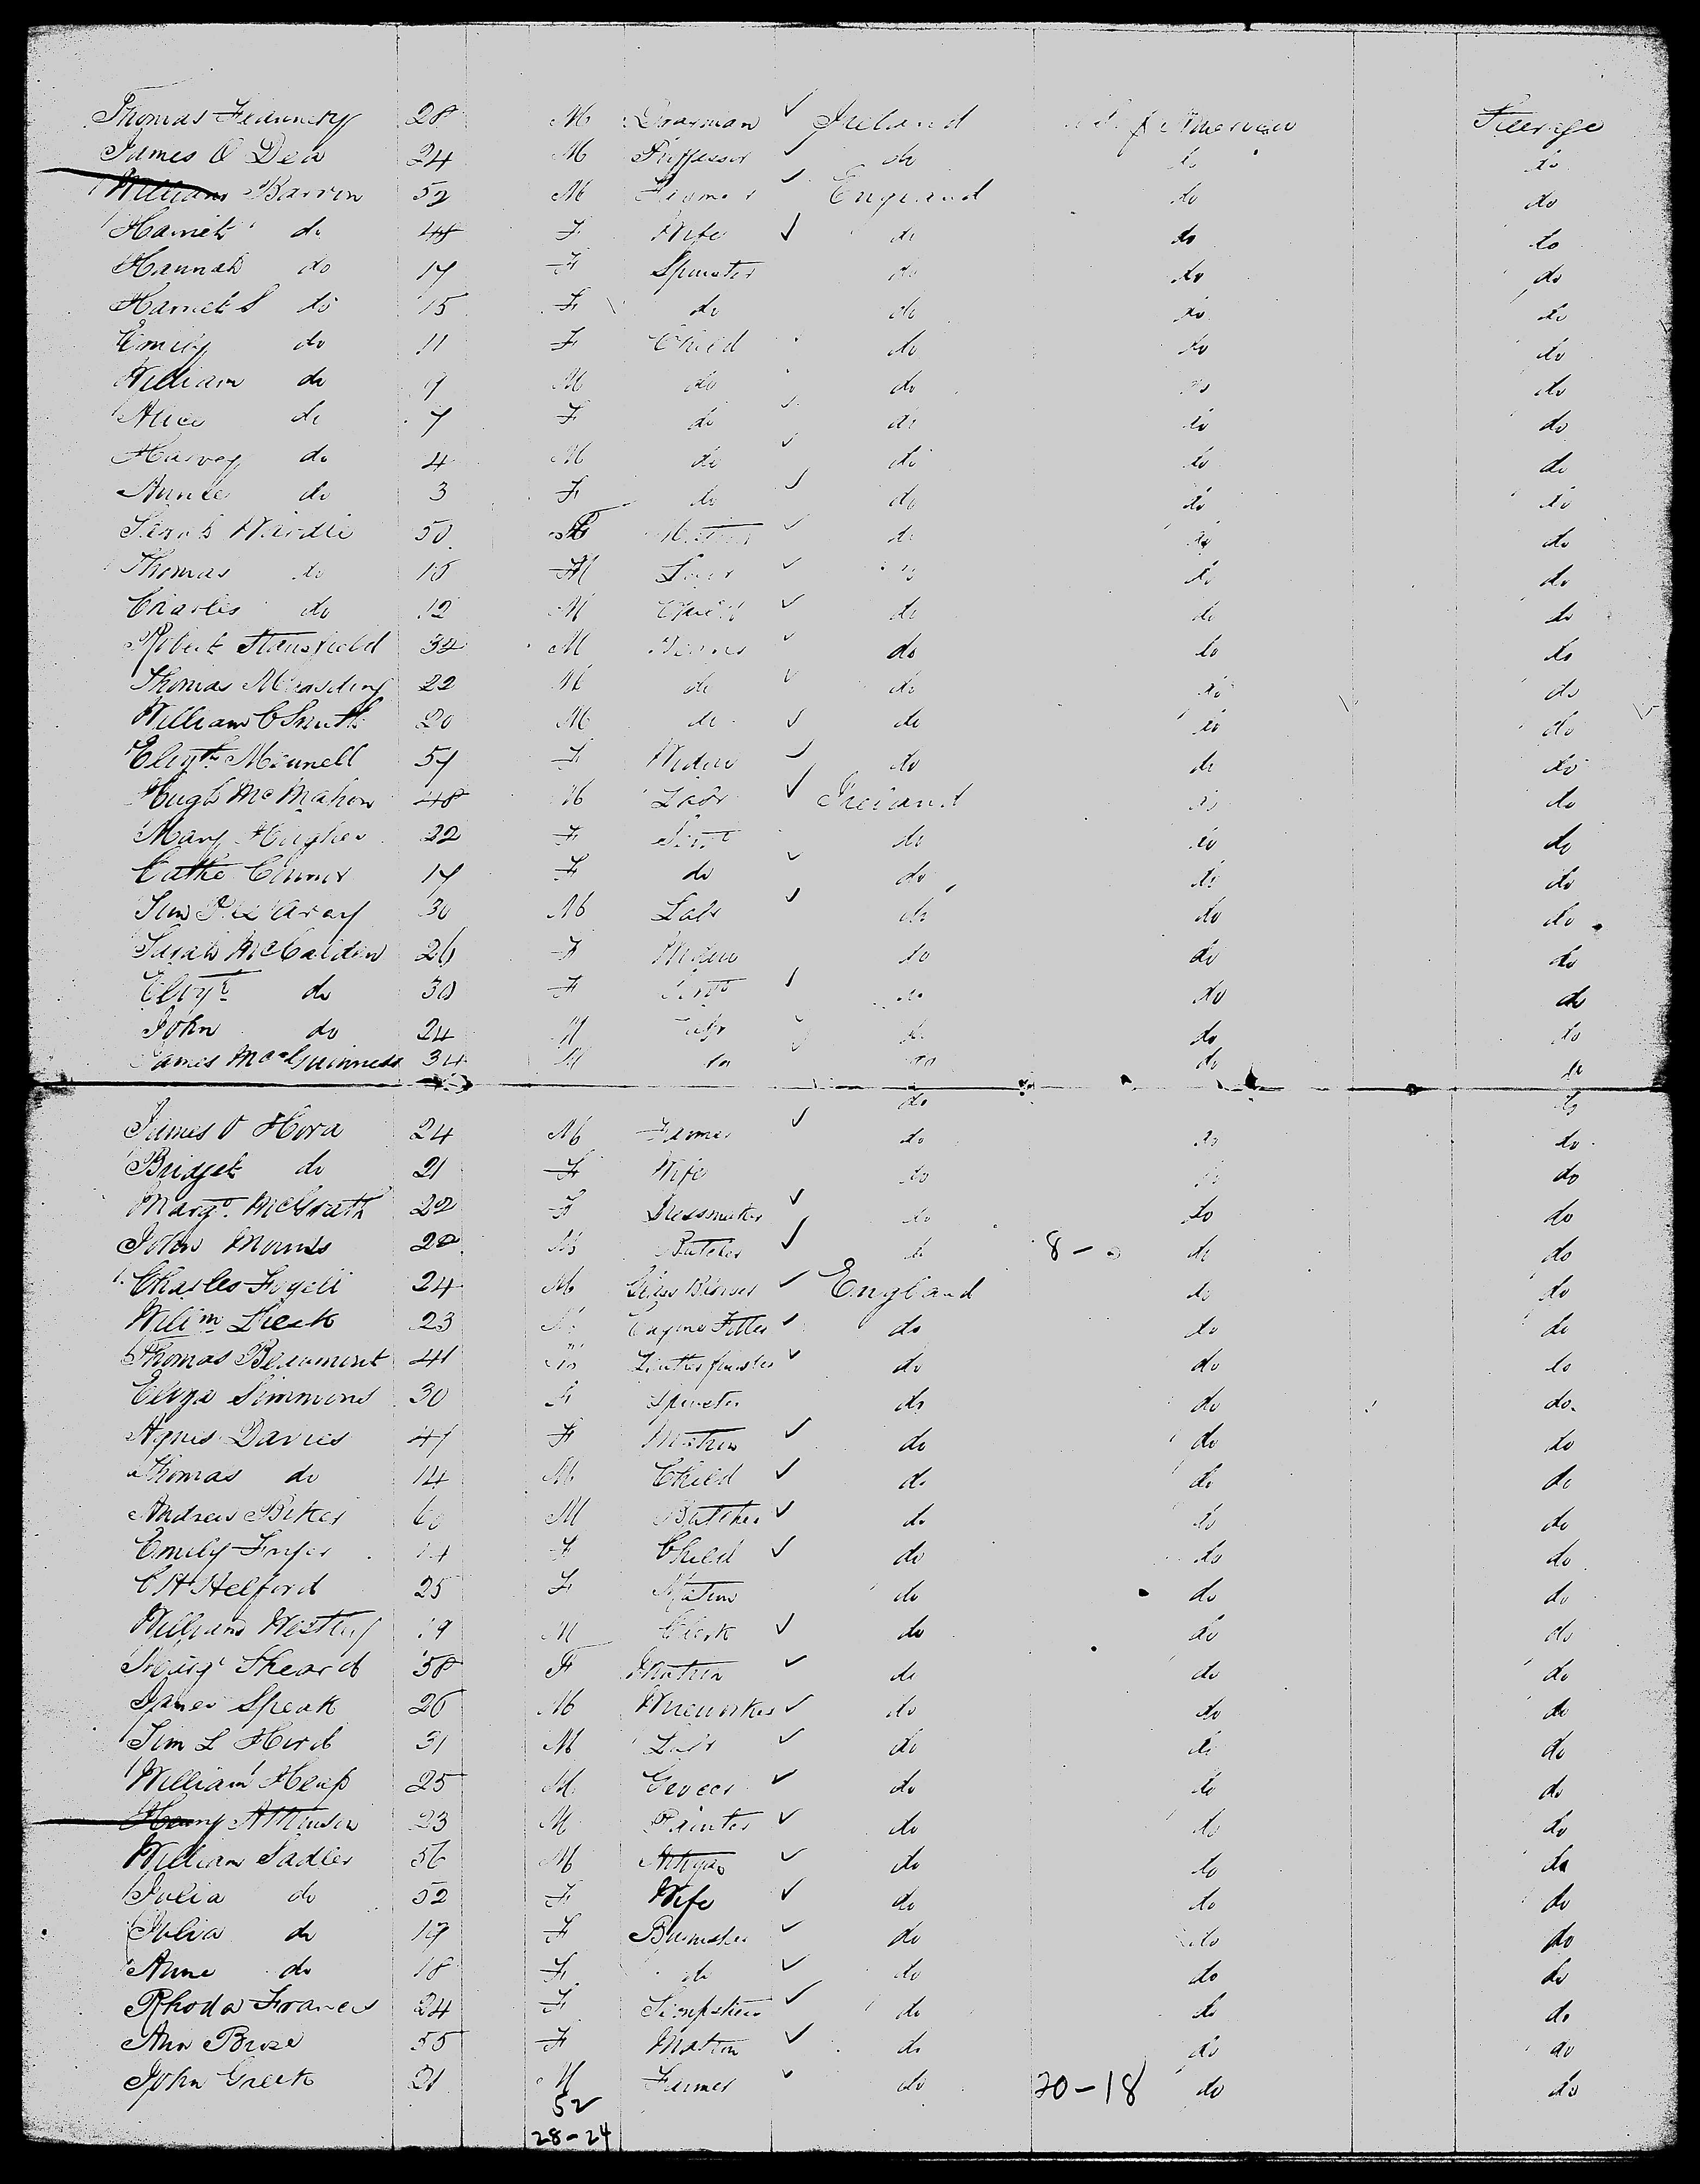 Thomas Flannery 28 M Drayman Ireland America Steerage
James O Dea 24 M Puffessor do do do
William Barron 52 M Farmer England do do
Harriet do 48 F Wife do do do
Hannah do 17 F Spinster do do do
Harriet S do 15 F do do do do
Emily do 11 F Child do do do
William do 9 M do do do do
Alice do 7 F do do do do
Harvey do 4 M do do do do
Annie do 3 F do do do do
Sarah Wardle 50 F Matron do do do
Thomas do 15 M do do do
Charles do 12 M Child do do do
Robert Stansfield 34 M do do do
Thomas 22 M do do do do
William C Smith 20 M do do do do
Elizth Meunell 57 F Widow do do do
Hugh McMahon 48 M Labr Ireland do do
Mary Hughes 22 F Servt do do do
Cathe Connor 17 F do do do do
30 M Labr do do do
Sarah McCalden 26 F Widow do do do
Elizth do 30 F Servt do do do
John do 24 M Labr do do do
James MacGuinness 34 M do do do do
do do
James O Hora 24 M Farmer do do do
Bridget do 21 F Wife do do do
Margt. McGrath 22 F Dressmaker do do do
John Morris 22 M Butcher do 8 - do do
Charles 24 M Glass Blower England do do
Willim Lieck 23 M Engine Fitter do do do
Thomas Beaumont 41 M do do do
Eliza Simmons 30 F Spinster do do do
Agnes Davies 47 F Matron do do do
Thomas do 14 M Child do do do
Andrew Biker 60 M Butcher do do do
Emily Fryer 14 F Child do do do
C H Helford 25 F Matron do do do
William Westley 19 M Clerk do do do
Margt Sheard 58 F Matron do do do
James Speak 26 M Wireworker do do do
Sim L Hird 31 M Labr do do do
William Hemp 25 M Grocer do do do
Henry Atkinson 23 M Painter do do do
William Sadler 56 M do do do
Julia do 52 F Wife do do do
Julia do 19 F do do do
Anne do 18 F do do do do
Rhoda Frances 24 F Sempstress do do do
Ann Brose 55 F Matron do do do
John Greek 21 M Farmer do 20-18 do do
52
28-24